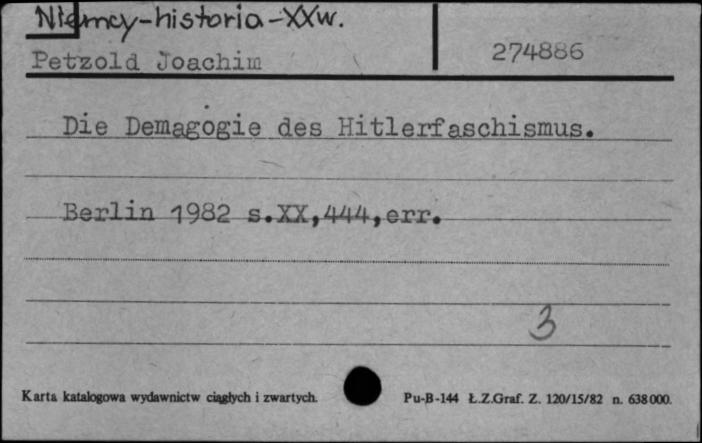 Niemcy-historia-XXw.
Petzold Joachim 274886
Die Demagogie des Hitlerfaschismus.
Berlin 1982 s.XX,444,err.
3
Karta katalogowa wydawnictw ciągłych i zwartych. Pu-B-144 Ł.Z.Graf. Z. 120/15/82 n. 638000.